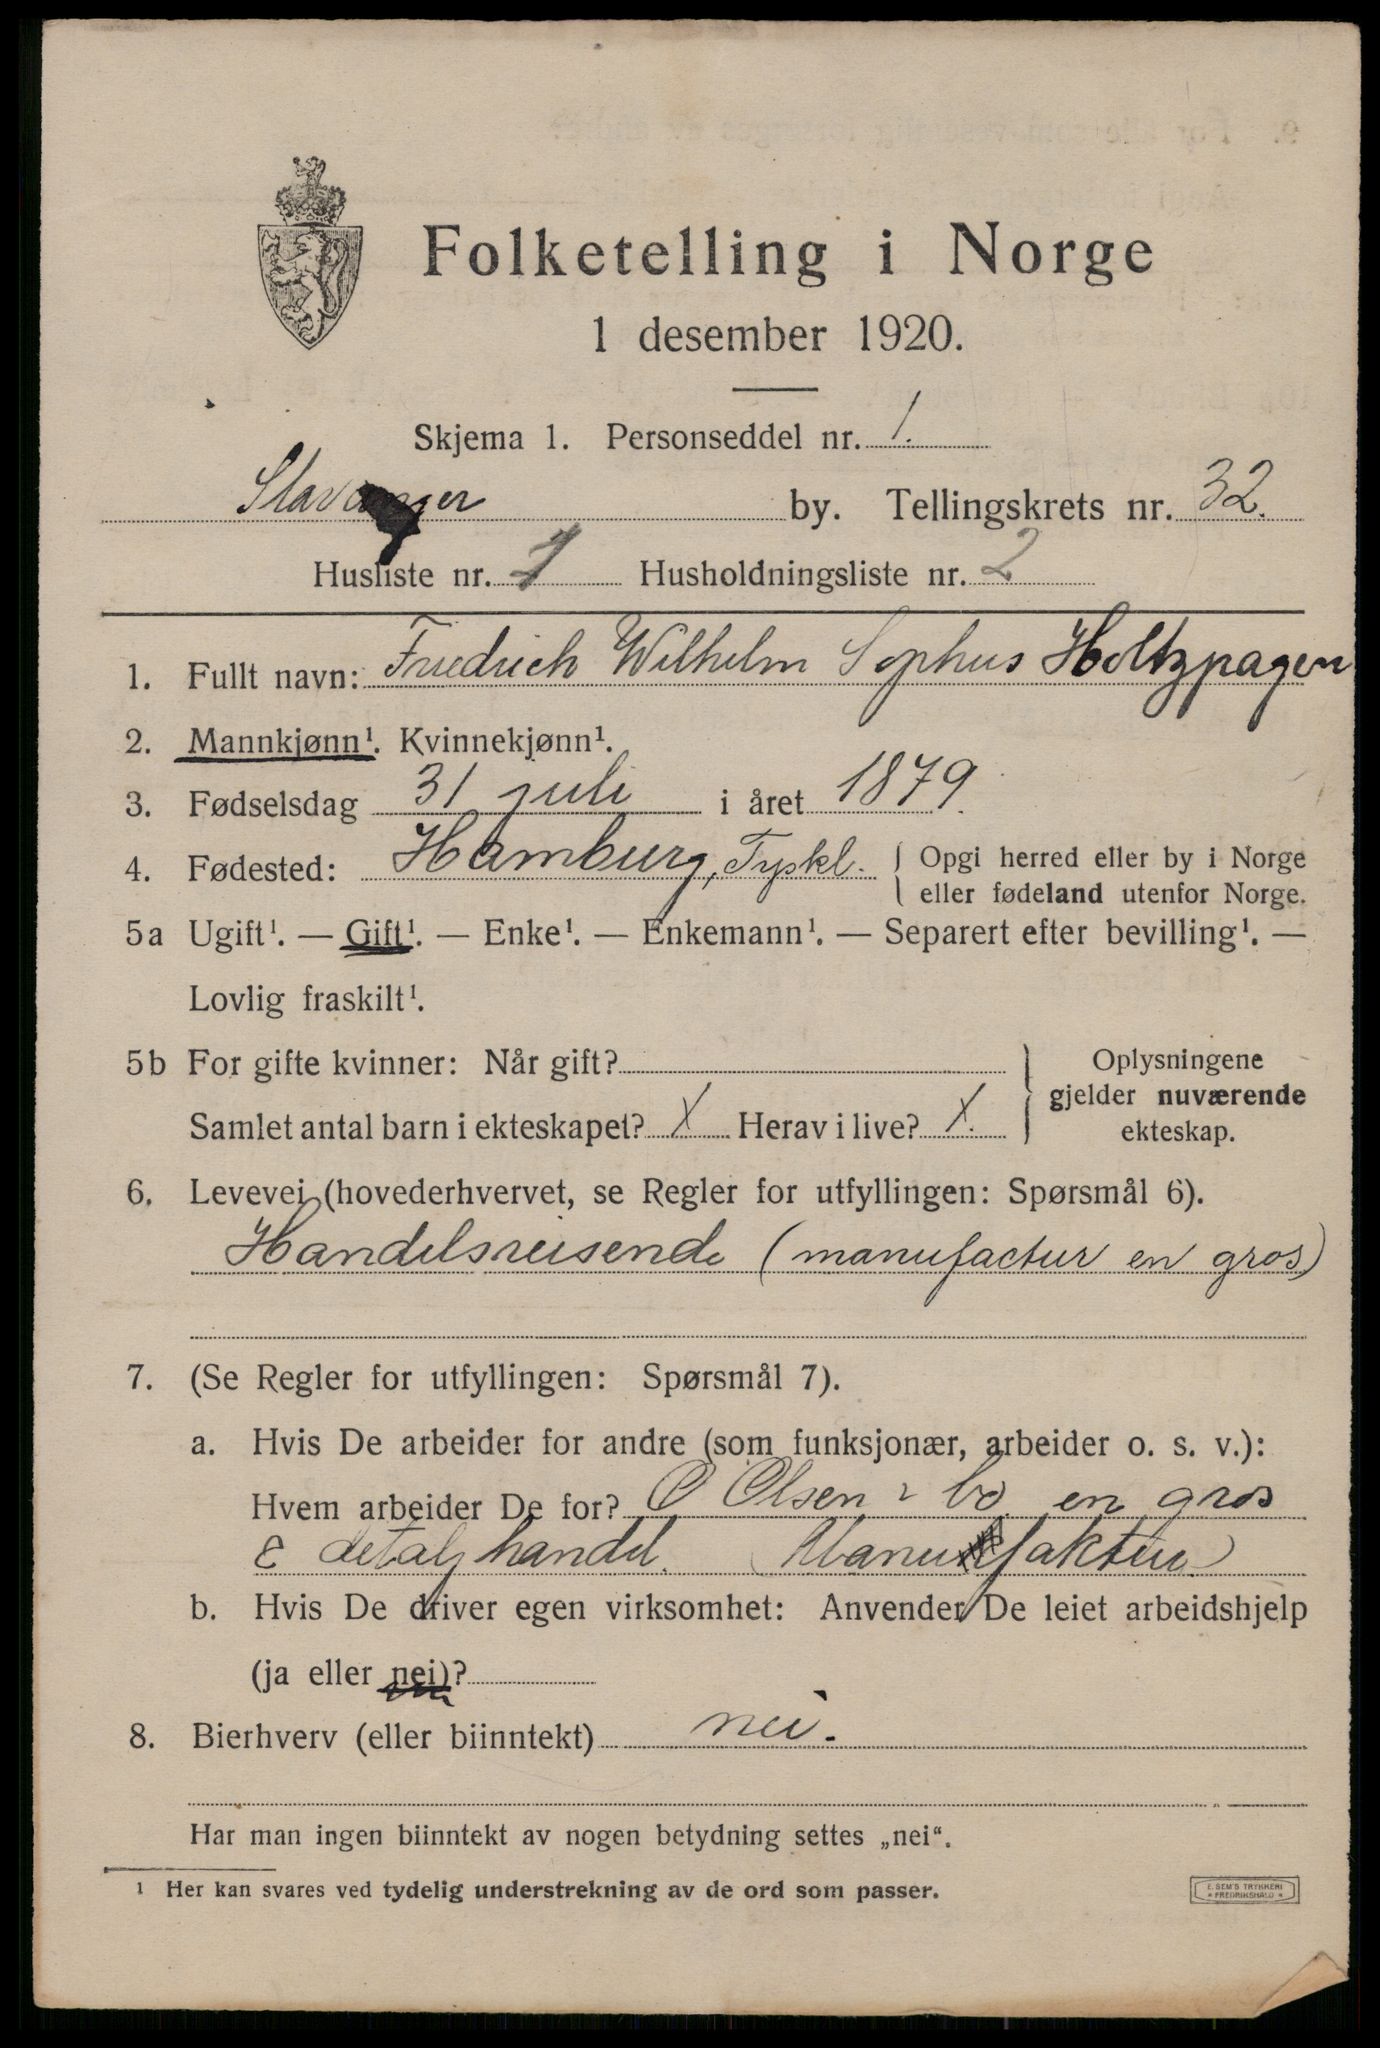 Folketelling i Norge
1 desember 1920.
Skjema 1. Personseddel nr. 1.
Stavanger by. Tellingskrets nr. 32.
Husliste nr. 1 Husholdningsliste nr. 2
1. Fullt navn: Friedrich Wilhelm Sophus Holtzpagen
2. Mannkjønn¹. Kvinnekjønn¹.
3. Fødselsdag 31 juli i året 1879.
4. Fødested: Hamburg, Tyskl. Opgi herred eller by i Norge
eller fødeland utenfor Norge.
5a Ugift¹. — Gift¹. — Enke¹. — Enkemann¹. — Separert efter bevilling¹. —
Lovlig fraskilt¹.
5b For gifte kvinner: Når gift? Oplysningene
gjelder nuværende
Samlet antal barn i ekteskapet? X Herav i live? X.
ekteskap.
6. Levevei (hovederhvervet, se Regler for utfyllingen: Spørsmål 6).
Handelsreisende (manufactur en gros)
7. (Se Regler for utfyllingen: Spørsmål 7).
a. Hvis De arbeider for andre (som funksjonær, arbeider o. s. v.):
Hvem arbeider De for? O Olsen & Co en gros
& detalj handel. Manufaktur
b. Hvis De driver egen virksomhet: Anvender De leiet arbeidshjelp
(ja eller nei)?
8. Bierhverv (eller biinntekt) nei.
Har man ingen biinntekt av nogen betydning settes „nei“.
1 Her kan svares ved tydelig understrekning av de ord som passer.
E. SEM'S TRYKKERI
FREDRIKSHALD